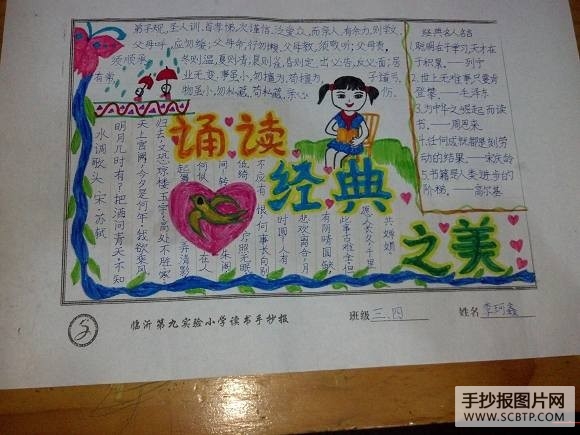 弟子规,圣人训,首孝悌,次谨信,泛爱众,而亲人,有余力,则学文,
父母呼,应勿缓,父母命,行勿懒,父母教,须敬听,父母责,
须顺承,冬则温,夏则凊,晨则省,昏则定,出必告,反必面,居
有常,业无变,事虽小,勿擅为,苟擅为,子道亏,
物虽小,勿私藏,苟私藏,亲心伤。
经典名人名言
1.聪明在于学习,天才在
于积累。——列宁
2.世上无难事只要肯
登攀。——毛泽东
3.为中华之崛起而读
书。——周恩来
4.任何成就都是刻苦劳
动的结果。——宋庆龄
5.书籍是人类进步的
阶梯。——高尔基
诵读
经典
之美
水调歌头 宋·苏轼
明月几时有?把酒问青天,不知
天上宫阙,今夕是何年。我欲乘风
归去,又恐琼楼玉宇,高处不胜寒。
起舞弄清影,
何似在人
间。转朱阁,
低绮户,照无眠。
不应有恨,何事长向别
时圆?人有
悲欢离合,月
有阴晴圆缺,
此事古难全。但
愿人长久,千里
共婵娟。
临沂第九实验小学读书手抄报
班级 三.四
姓名 李珂鑫
手抄报图片网
WWW.SCBTP.COM